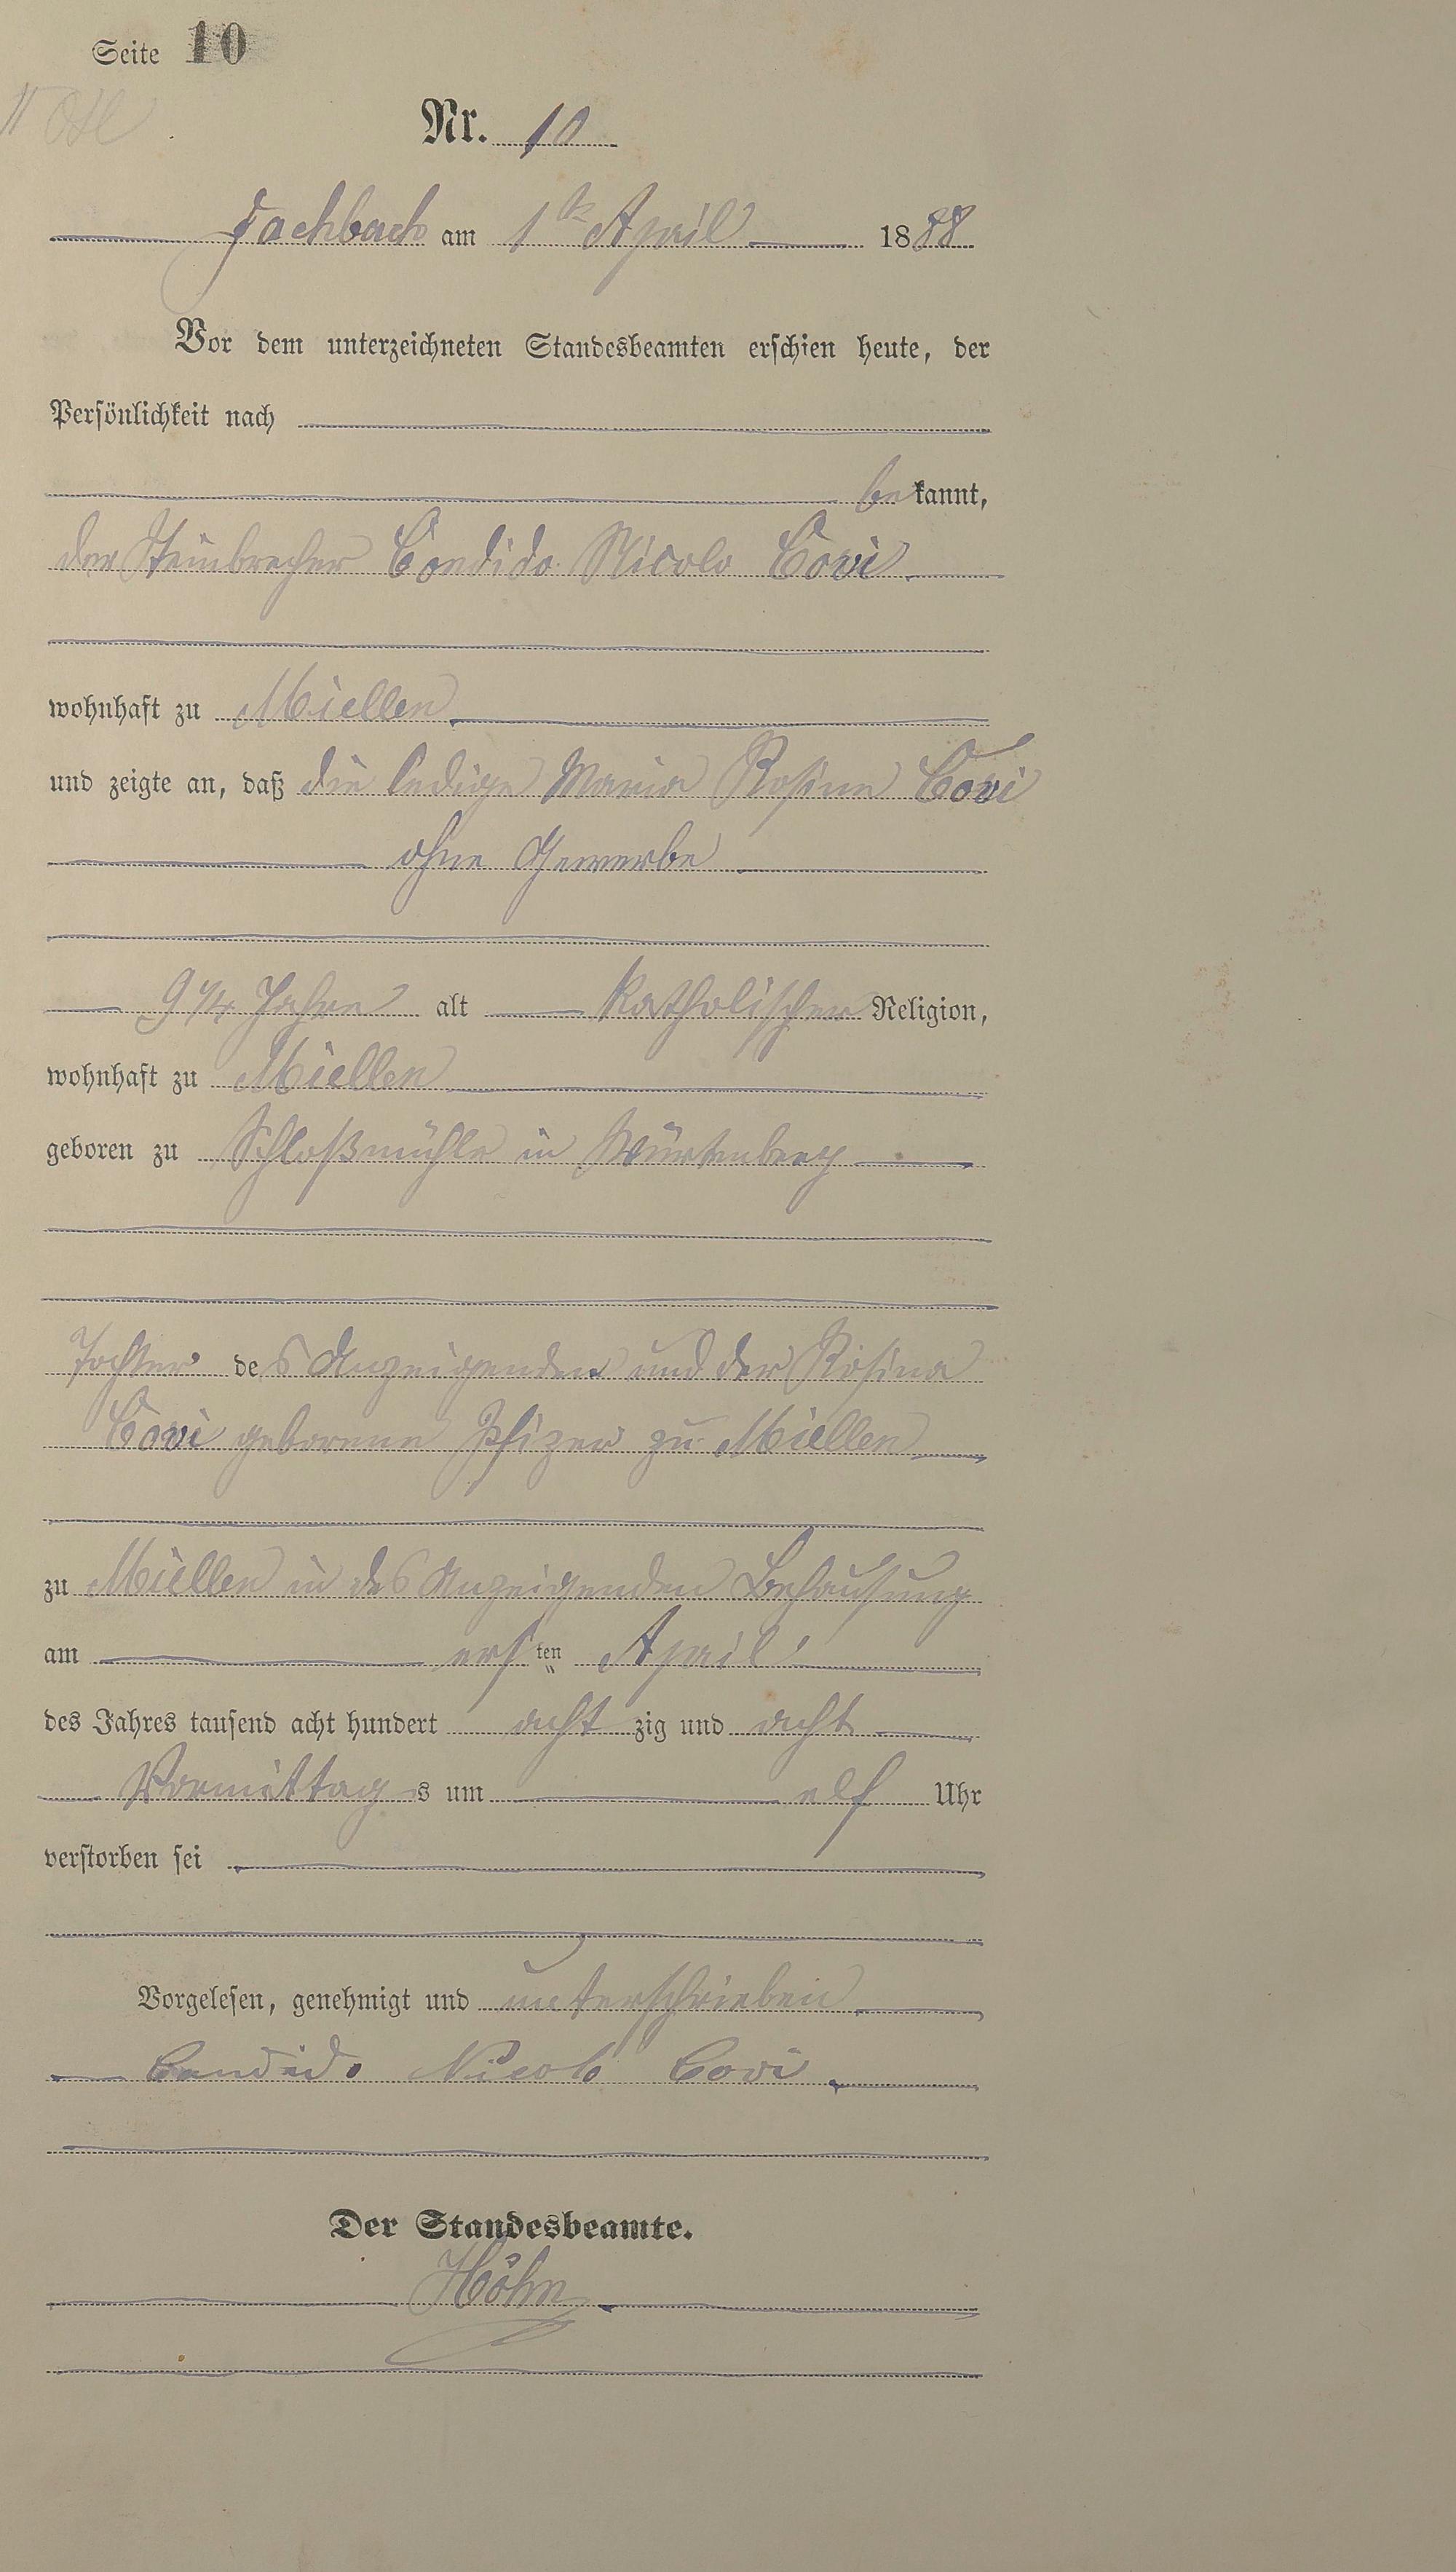 Seite 10
Nr. 10
Fachbach am 1te April 1888
Vor dem unterzeichneten Standesbeamten erschien heute, der
Persönlichkeit nach
bekannt,
der Steinbrecher Candido Nicolo Covi
wohnhaft zu Miellen
und zeigte an, daß die ledige Maria Rosina Covi
ohne Gewerbe
9 1/4 Jahre alt katholischer Religion,
wohnhaft zu Miellen
geboren zu Schloßmühle in Würtemberg
Tochter des Anzeigenden und der Rosina
Covi geborene Pfizer zu Miellen
zu Miellen in des Anzeigenden Behausung
am ersten April
des Jahres tausend acht hundert achtzig und acht
Vormittags um elf Uhr
verstorben sei
Vorgelesen, genehmigt und unterschrieben
Candido Nicolo Covi
Der Standesbeamte.
Höhn